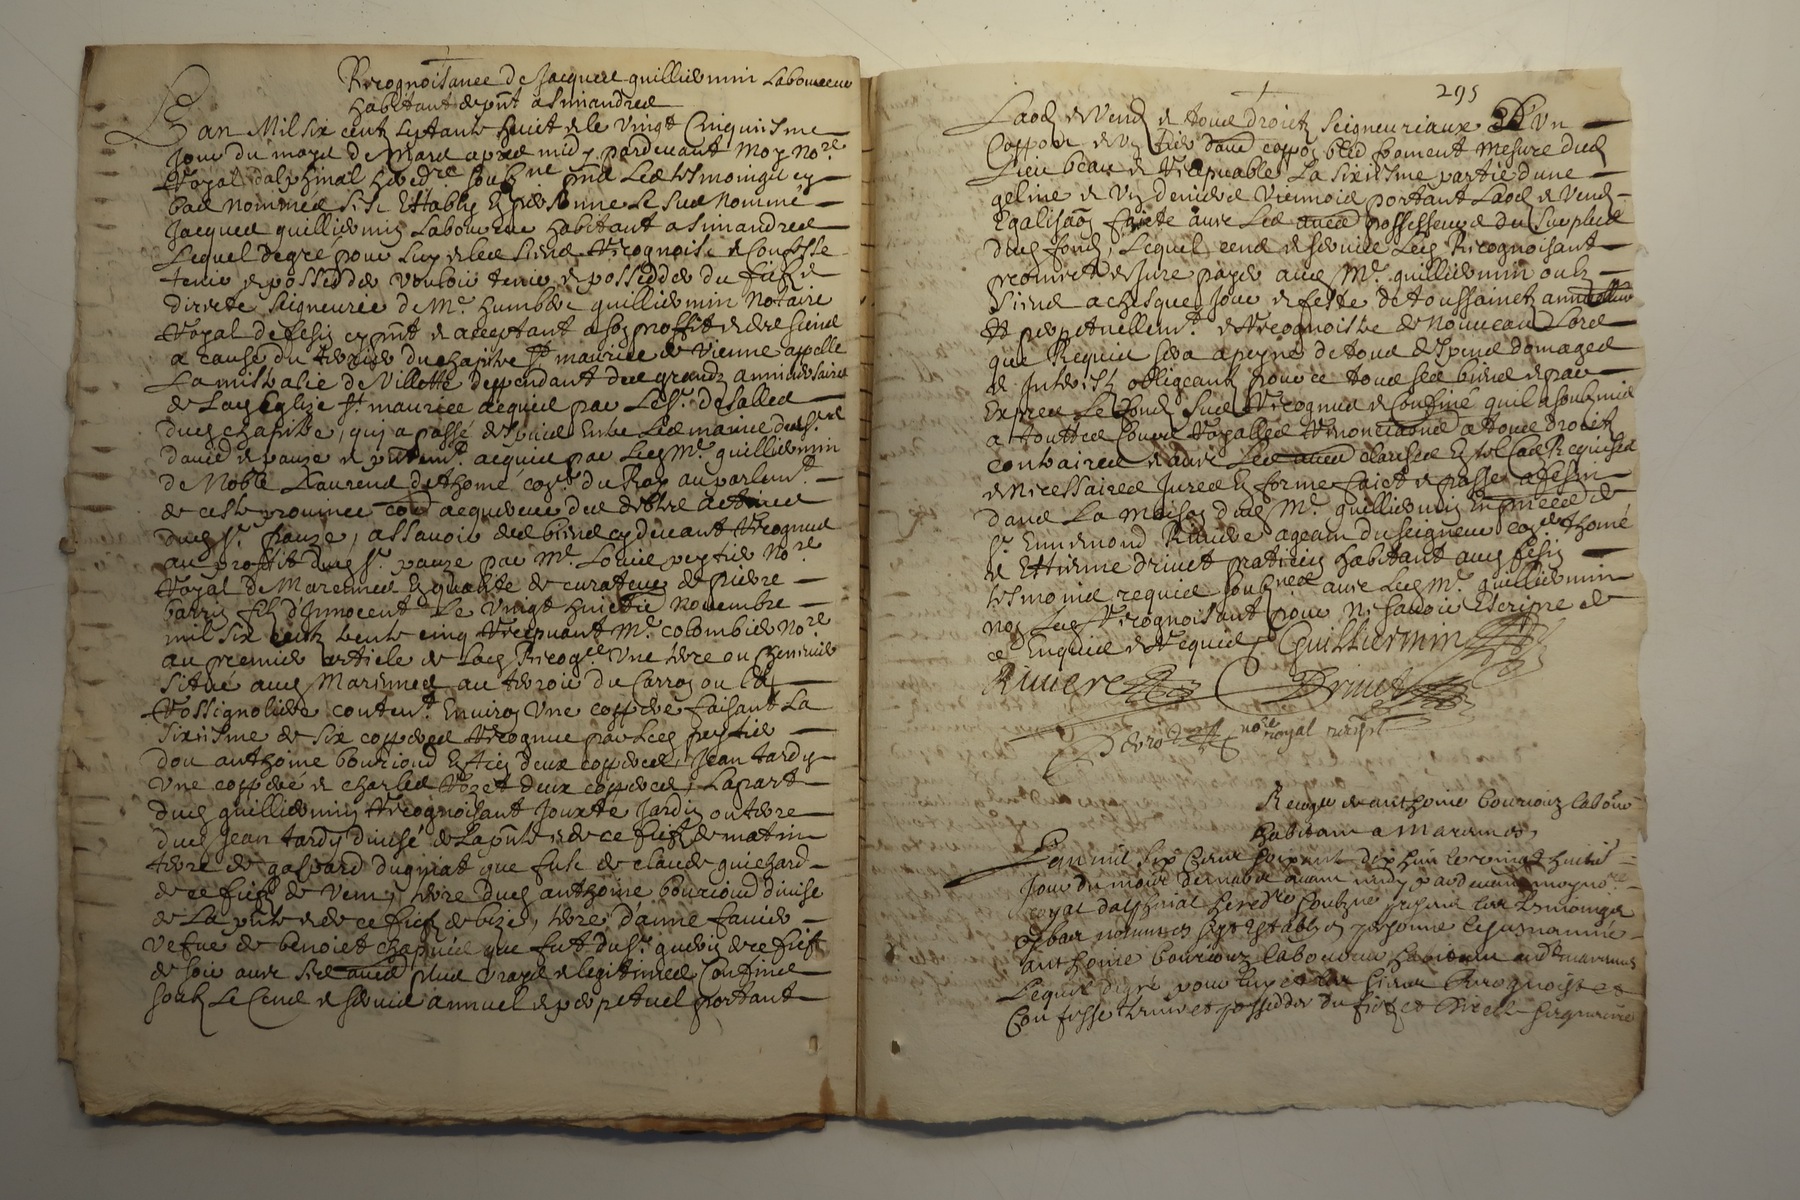 Recognoissance de Jacques guilliermin Laboureur
habitant de pnt a Simandres
L'an Mil six cent septante huict et le vingt Cinquiesme
Jour du moys de Mars apres midy pardevant Moy No.re
Royal dalphinal hered.re soubz.ne pnd Les tesmoingtz cy
bas nommes s'est Estably En personne Le sus Nommé
Jacques guilliermin Laboureur habitant a Simandres
Lequel de gré pour luy et les siens Recognoist et Confesse
tenir et posseder vouloir tenir et posseder du fief et
directe seigneurie de M.e humbert guilliermin Notaire
Royal de fesin cy pnt et acceptant a son proffit et des siens
a cause du terrier du chapitre S.t maurice de Vienne appelle
La mistralie de Villette deppendant des grands anniversaires
de Lad Eglize S.t maurice acquis par Le S.r desalles
dud chapitre, qui a passé despuis Entre Les mains des S.rs
david et pauze et pntem.t acquis par Led M.e guilliermin
de Noble Laurens de thomé con.er du Roy au parlem.t
de ceste province
dud S.r pauze, assavoir des biens cy devant Recognus
au proffit dud S.r pauze par M.e Louis peytier No.re
Royal de Marennes En qualité de curateur de pierre
barrin filz d'Innocent Le Vingt huictie Novembre
mil six centz trente cinq Recepvant M.e colombier No.re
au premier article de Lad Recog.ce Une terre ou cheneviere
Située aud Marennes au terroir du Carroz ou de
Rossignoliere conten.t Environ Une coupée faisant La
sixiesme de six coupees Recognue par Led peytier
dou anthoine bourioud En tien deux coupees, Jean tardy
Une coupée et charles Rozet deux coupees, Lapart
dud guilliermin Recognoissant Jouxte Jardin ou terre
dud Jean tardy divisé de La pnte et de ce fief de matin
terre de gaspard dugniat que fust de claude guichard
de ce fief de Vent, terre dud anthoine bourioud divise
de La pnte et de ce fief de bize, terre d'anne favier
Vefve de benoict chapuis que fut du S.r guerin de ce fief
de soir avec ses autres plus vrays et legitimes Confins
soubz Le Cens et servis annuel et perpetuel portant
295
Laodz et Vendz et tous droictz Seigneuriaux D'Un
Coppon et Un tiers d'autre coppon bled froment Mesure dud
Lieu beau et Recepvable La Sixiesme partie d'une
geline et Un denier Viennois portant Laodz et Vendz
Egalisaon faicte avec Les autres possesseurs du Surplus
dud fondz, Lequel cens et servis Led Recognoissant
promect et Jure payer aud M.e guilliermin ou es
Siens a chesque Jour et feste de toussainctz annuellem
et perpetuellem.t et Recognoistre de Nouveau Lors
que Requis sera a peyne de tous despens domages
et Interestz obligeantz pour ce tous ses biens et par
Expres Le fondz Sus Recognus et Confiné qu'il a soubzmis
a touttes Cours Royalles Renonciaons a tous droictz
contraires et avec Les autres clauses En tel Cas Requises
et Necessaires Jures En forme faict et passé a fesin
dans La Maison dud M.e guilliermin En pnce de
S.r Ennemond Riviere ageant du seigneur con.er thomé
et Ettienne drivet praticien habitant aud fesin
tesmoins requis soubz.nes avec Led M.e guilliermin
non Led Recognoissant pour Ne scavoir Escripre de
ce Enquis et Requis Guilliermin
Riviere Drivet
no.re royal recepv
Recogn de anthoine bouriouz labour
habitant a Maranes
L'an mil six cens soixante dix huit le vingt huitie
Jour du mois de mars avant midy pardevant moy no.re
royal dalphinal hered.re soubzne present les tesmoingz
bas nommes s'est estably en personne le susnommé
anthoine bouriouz laboureur habitant aud maranes
Lequel de gré pour luy et les siens Recognoist et
Confesse tenir et posseder du fief et directe seigneurie